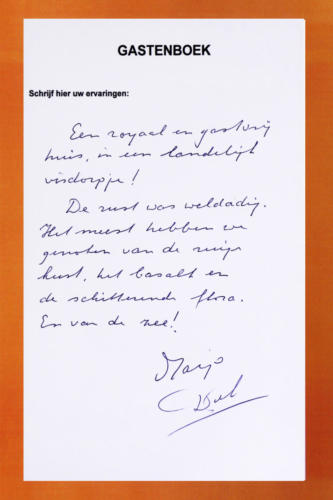 GASTENBOEK
Schrijf hier uw ervaringen:
Een royaal en gastvrij
huis, in een landelijk
visdorpje!
De rust was weldadig.
Het meest hebben we
genoten van de ruige
kust, het basalt en
de schitterende flora.
En van de zee!
Marijo